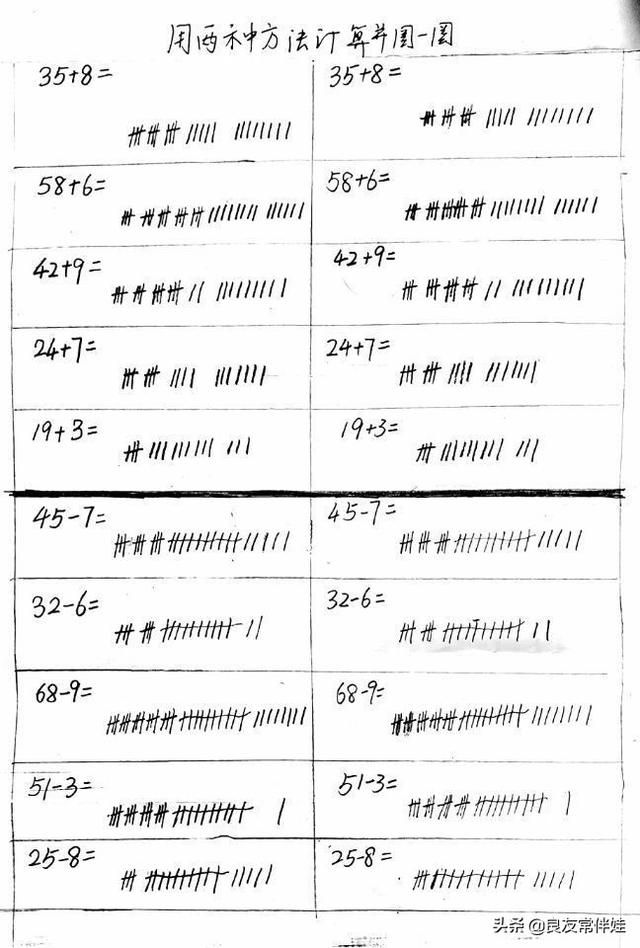 用两种方法计算并圈一圈
35+8=
35+8=
58+6=
58+6=
42+9=
42+9=
24+7=
24+7=
19+3=
19+3=
45-7=
45-7=
32-6=
32-6=
68-9=
68-9=
51-3=
51-3=
25-8=
25-8=
头条 @良友常伴娃